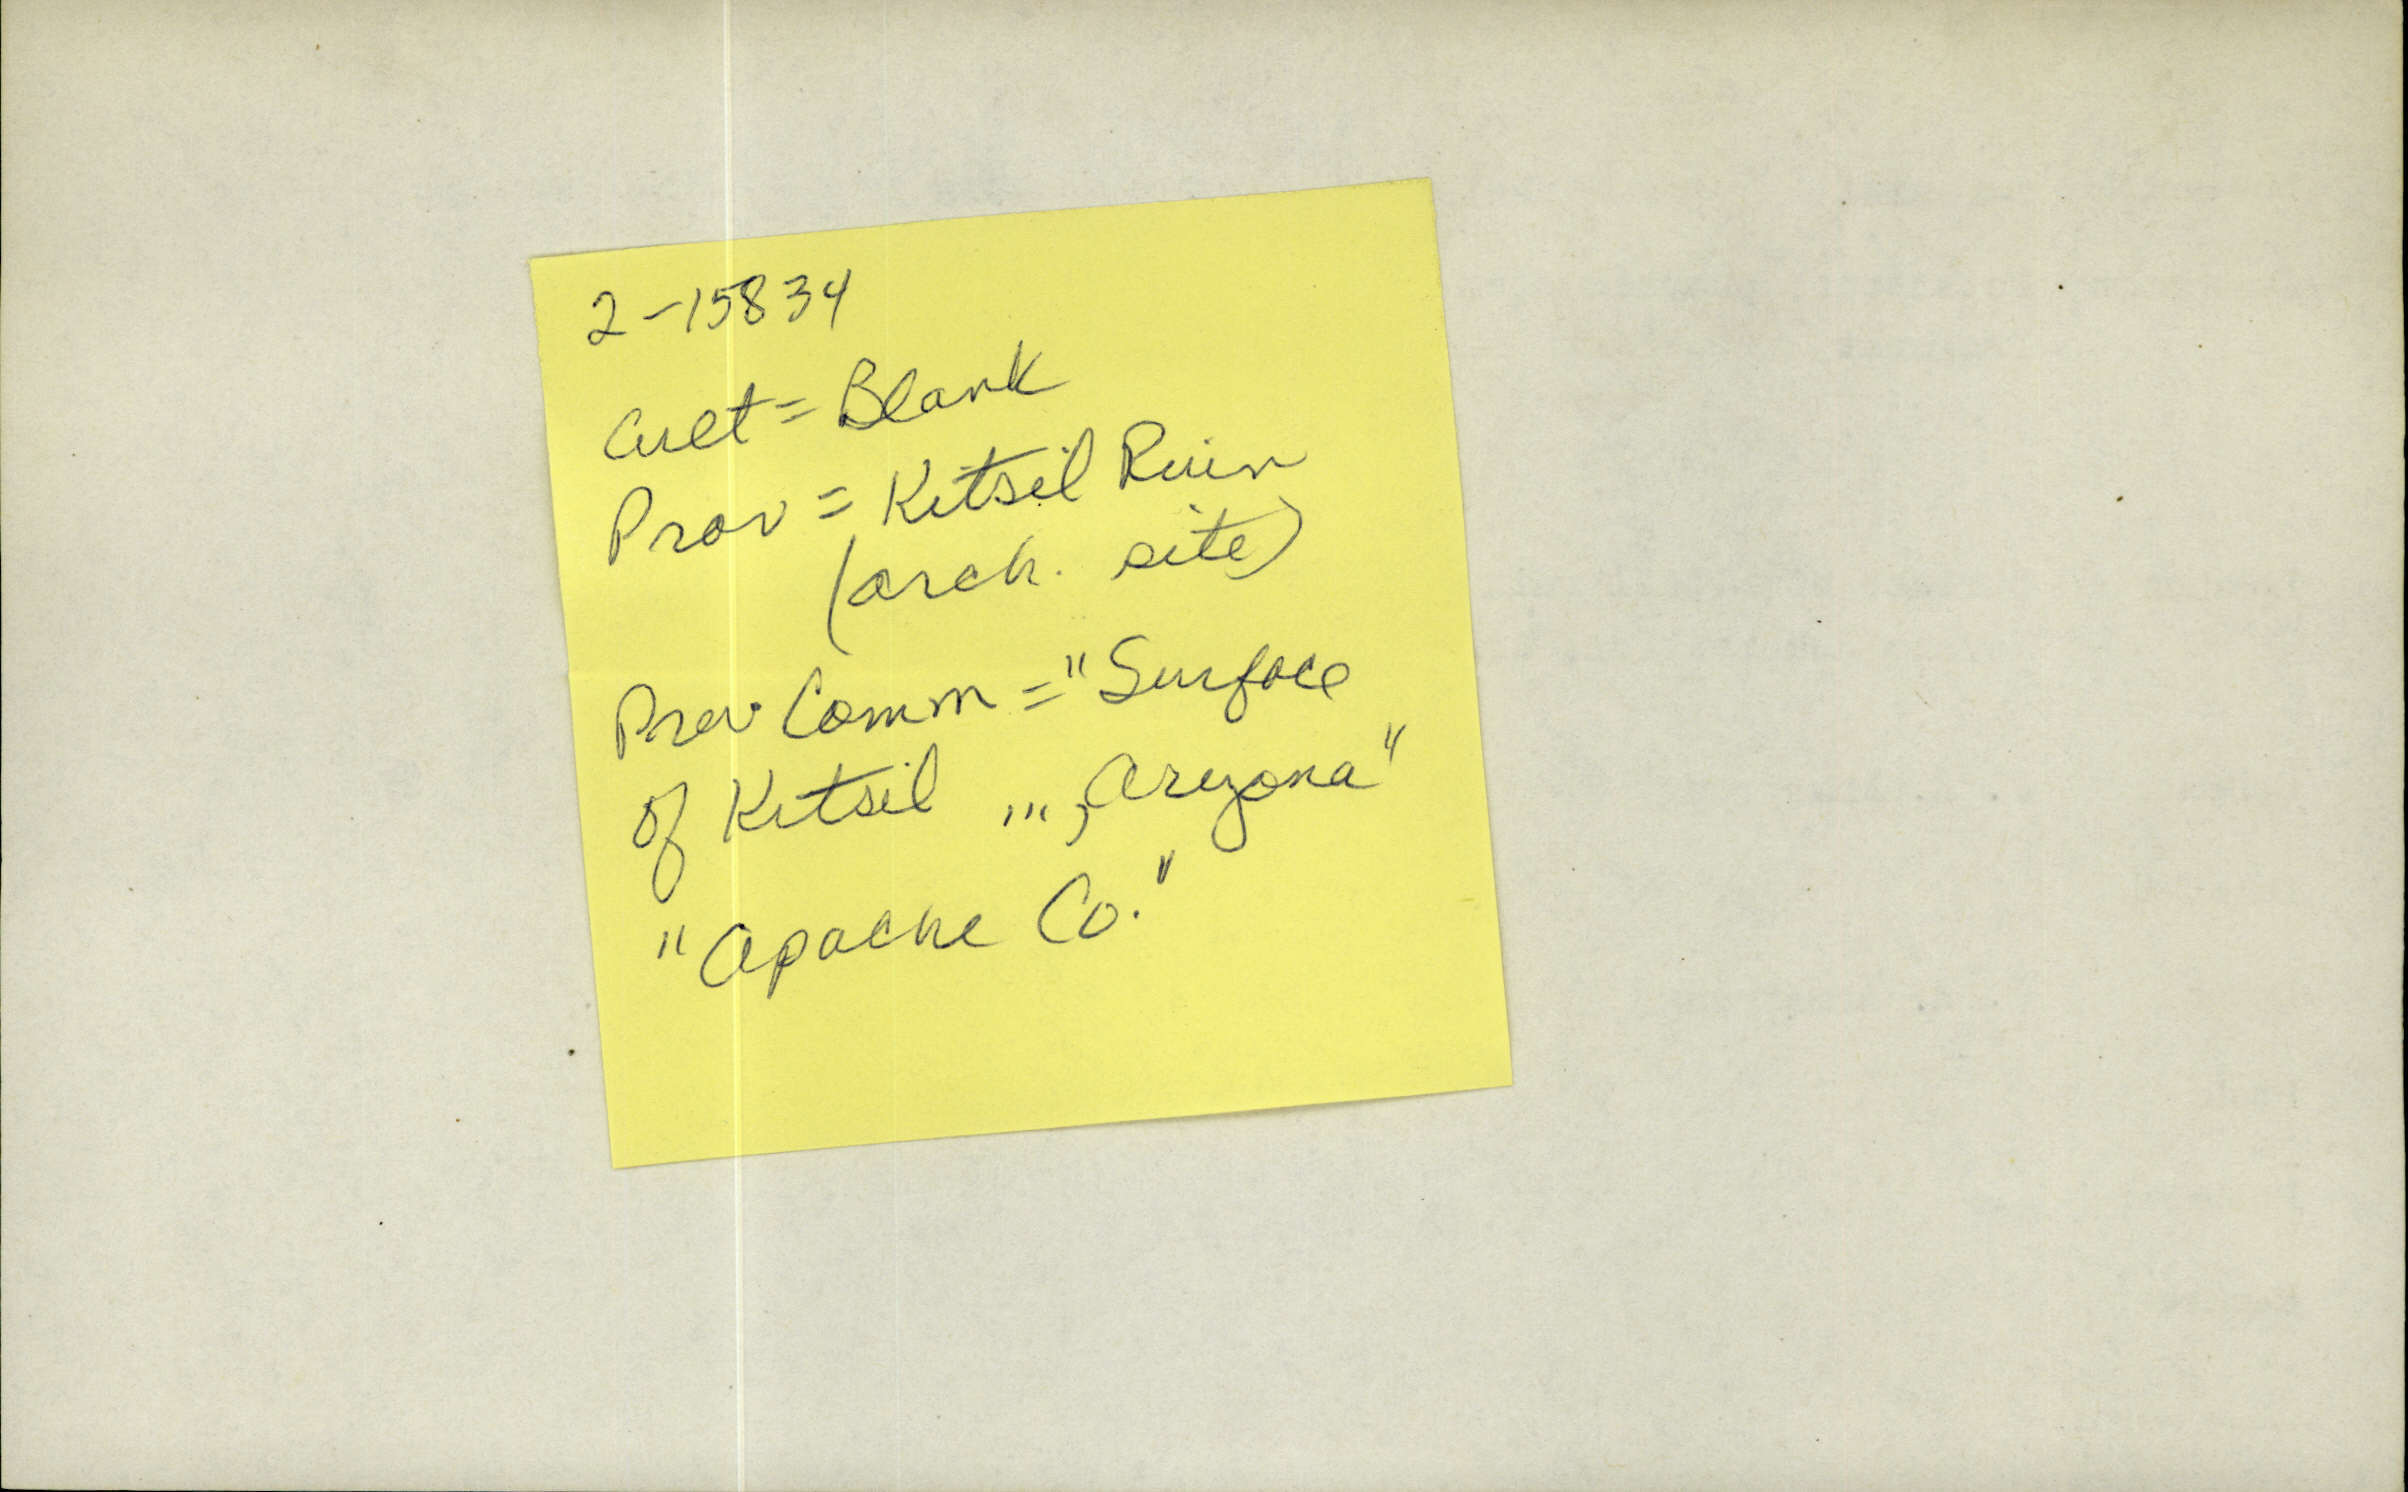 2-15834
Cult = Blank
Prov = Kitsil Ruin
(arch. site)
Prov Comm = "Surface
of Kitsil ..., Arizona"
"Apache Co."